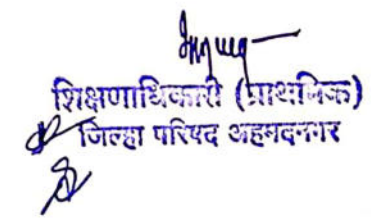 शिक्षणाधिकारी (प्राथमिक)
जिल्हा परिषद अहमदनगर